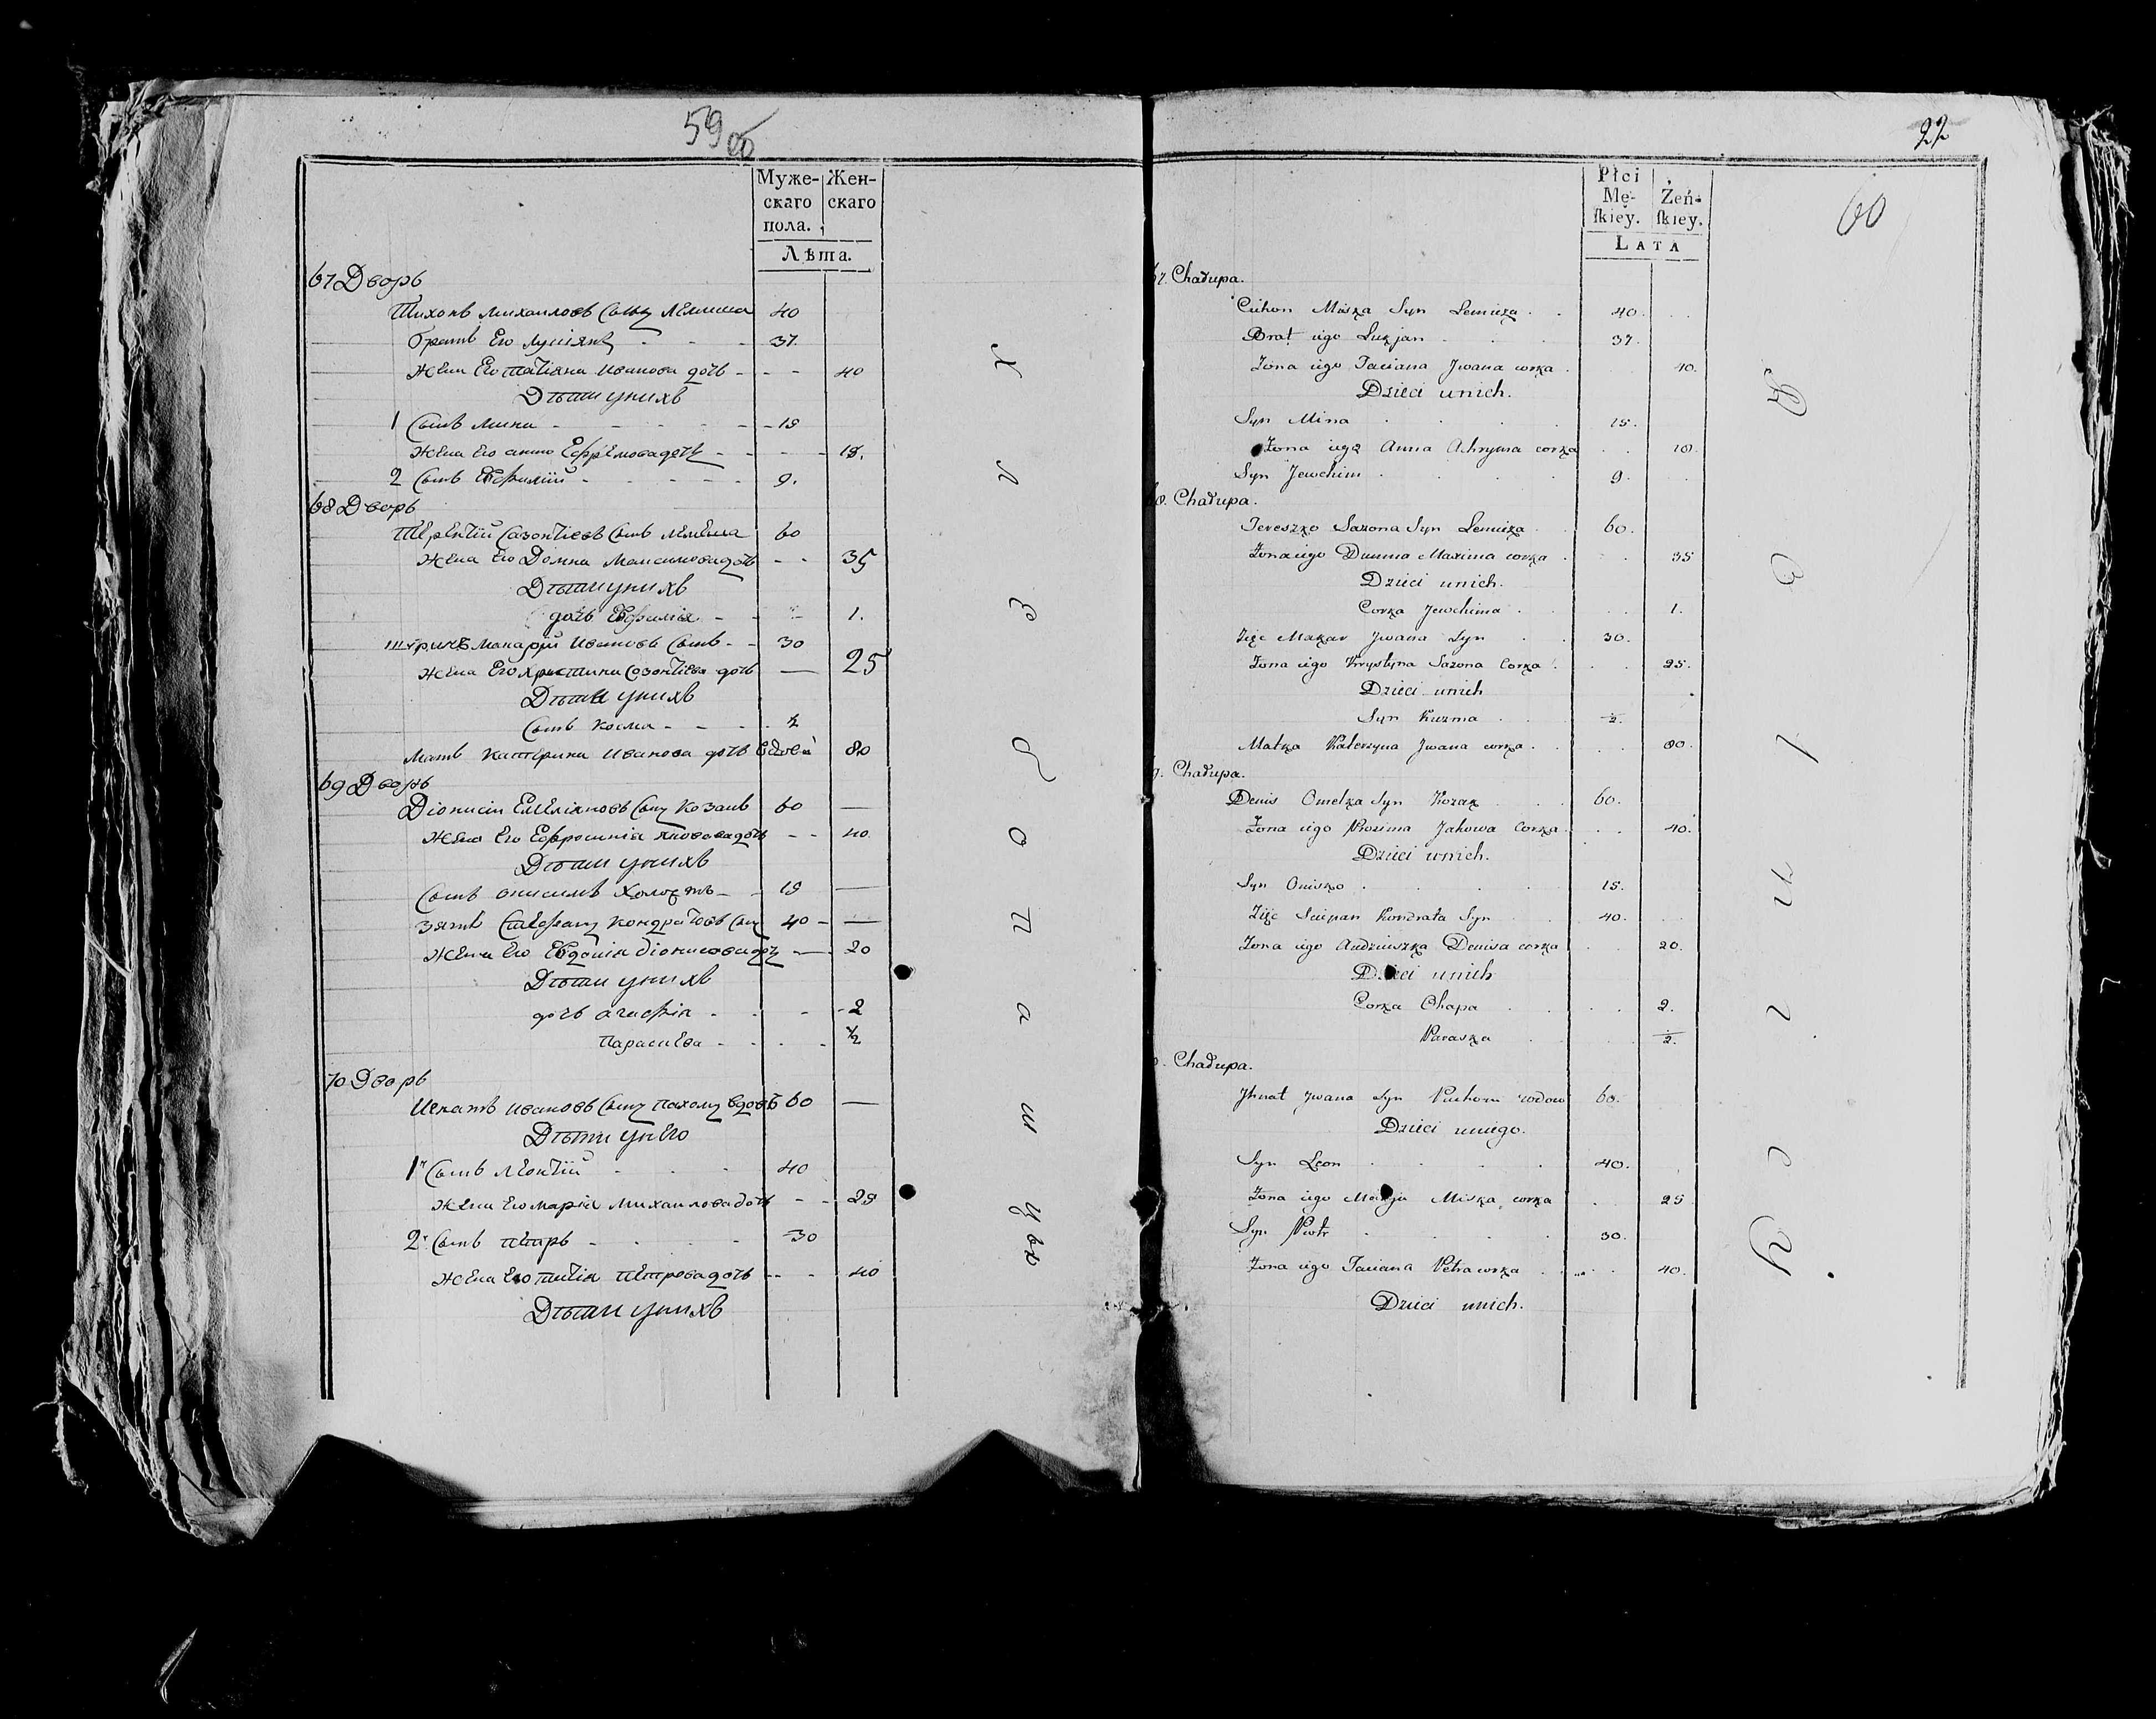 59 об
Муже- Жен-
скаго скаго
пола.
Лѣта.
67 Дворъ
Тихонъ Михаиловъ Сынъ Лемеша 40
братъ Его Лукіянъ 37.
жена Его Татіяна Иванова дочь 40
Дѣти у нихъ
1 Сынъ Мина 15
жена Его анна Ефремова дочь 18.
2 Сынъ Евфимій 9.
68 Дворъ
Терентій Сазонтіевъ Сынъ Лемеша 60
жена Его Домна Максимова дочь 35
Дѣти у нихъ
дочь Евфимія 1.
Макарій Ивановъ Сынъ 30
жена Его Христина Созонтіева дочь 25
Дѣти у нихъ
Сынъ Косма ½
Мать Катерина Иванова дочь вдова 80
69 Дворъ
Діонисій Емеліяновъ Сынъ Козакъ 60
жена Его Ефросинія Яковова дочь 40
Дѣти у нихъ
Сынъ Онисимъ Холостъ 15
зять Стефанъ Кондратовъ Сынъ 40
жена Его Евдокія Діонисова дочь 20
Дѣти у нихъ
дочь Агафія 2
Параскева ½
70 Дворъ
Игнатъ Ивановъ Сынъ вдовъ 60
Дѣти у Него
1й Сынъ Леонтій 40
жена Его Марія Михаилова дочь 25
2й Сынъ Петръ 30
жена Его Петрова дочь 40
Дѣти у нихъ
Х л э б о п а ш ц ы
22
60
Płci
Mę- Żeń-
skiey. skiey.
LATA
67. Chałupa.
Cichon Miska Syn Lemiesza 40.
Brat iego Łukjan 37.
Żona iego Taciana Jwana corka 40.
Dzieci unich.
Syn Mina 15.
Żona iego Anna Achryma corka 18.
Syn Jewchim 9.
68. Chałupa.
Tereszko Sazona Syn Lemiesza 60.
Żona iego Dumna Maxima corka 35
Dzieci unich.
Corka Jewchima 1.
Zięc Makar Jwana Syn 30.
Żona iego Krystyna Sazona Corka 25.
Dzieci unich
Syn Kuzma ½.
Matka Katerzyna Jwana corka 80.
69. Chałupa.
Denis Omelka Syn Kozak 60.
Żona iego Jakowa Corka 40.
Dzieci unich.
Syn Onisko 15.
Zięc Sciepan Kondrata Syn 40.
Żona iego Audziuszka Denisa corka 20.
Dzieci unich
Corka Ohapa 2.
Paraska ½.
70. Chałupa.
Jhnat Jwana Syn wdow 60.
Dzieci uniego.
Syn Leon 40.
Żona iego Marya Miska corka 25
Syn Piotr 30.
Żona iego Taciana Petra corka 40.
Dzieci unich.
R o l n i c y.